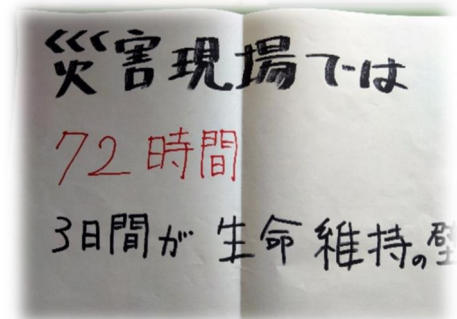 災害現場では
72時間
3日間が生命維持の壁